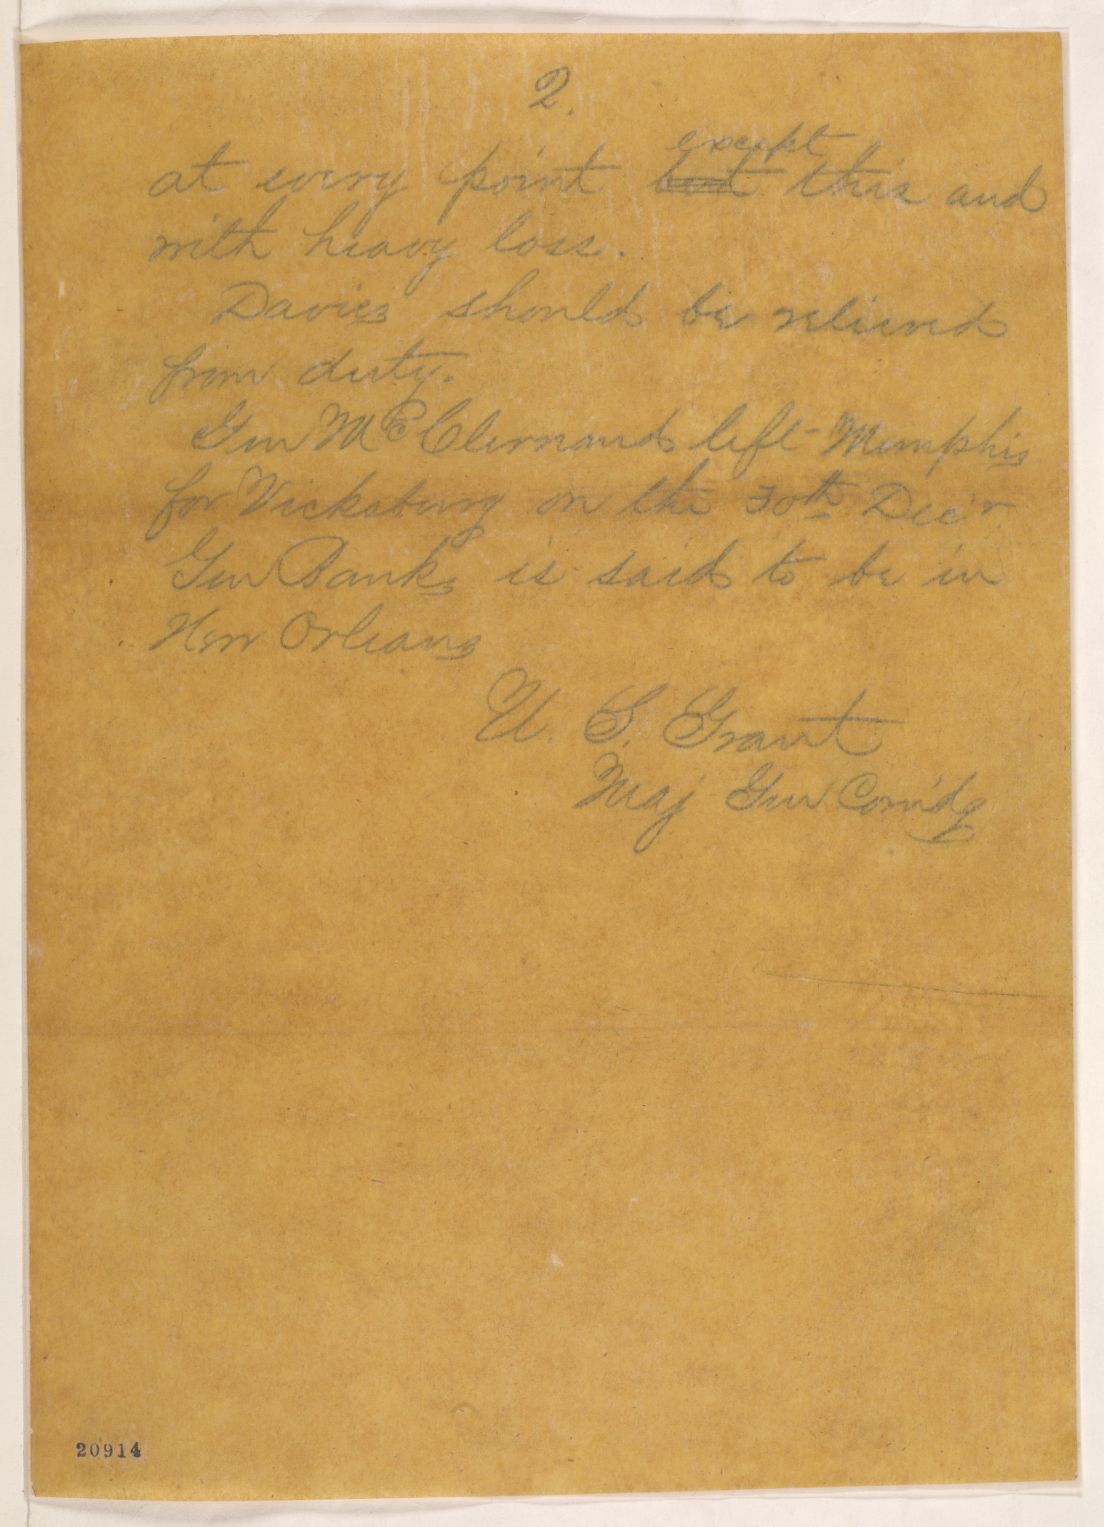 2.
at every point but except this and
with heavy loss.
Davies should be relieved
from duty.
Gen McClernand left Memphis
for Vicksburg on the 30th Dec'r
Gen Banks is said to be in
New Orleans
U. S. Grant
Maj Gen Com'dg
20914